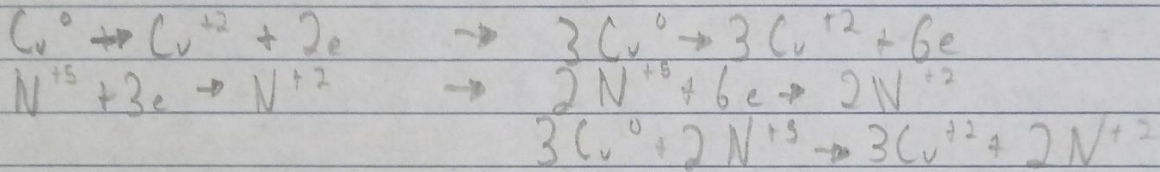 Cu⁰ → Cu⁺² + 2e → 3Cu⁰ → 3Cu⁺² + 6e
N⁺⁵ + 3e → N⁺² → 2N⁺⁵ + 6e → 2N⁺²
3Cu⁰ + 2N⁺⁵ → 3Cu⁺² + 2N⁺²